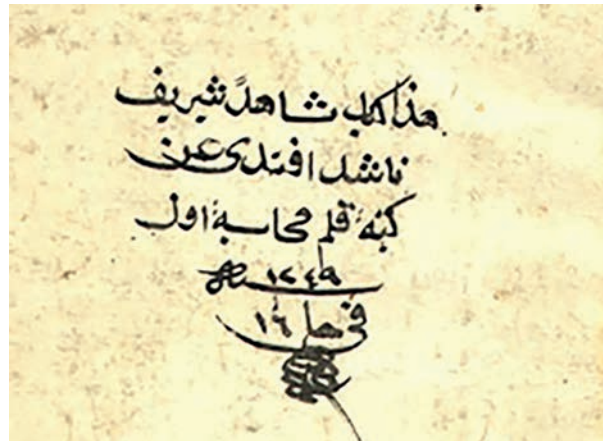 هذا كتاب شاهد شريف
ناشد افندى عن
كتبهٔ قلم محاسبهٔ اول
سنه ١٢٤٩
فى ١٦